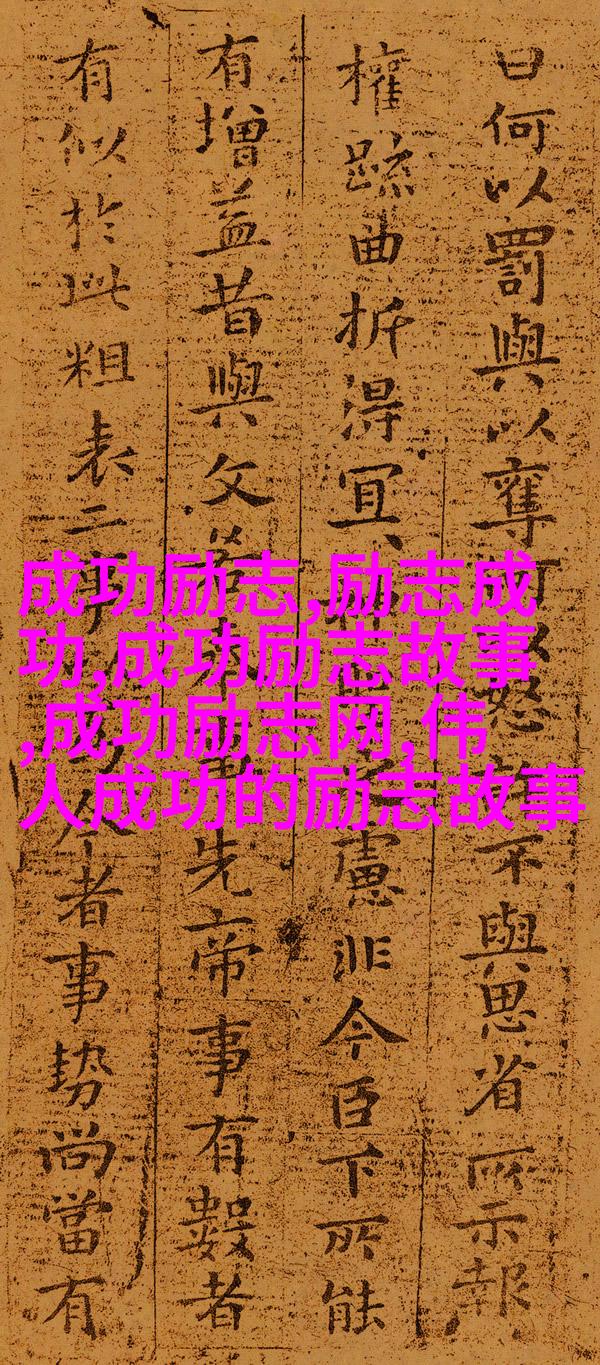 曰何以罰與以奪怒不與思省所示報
權疏曲折得冝慮非今臣下所能
有增益昔與文若事先帝事有數者
有似於此粗表二事今者事勢尚當有
成功励志,励志成
功,成功励志故事
,成功励志网,伟
人成功的励志故事